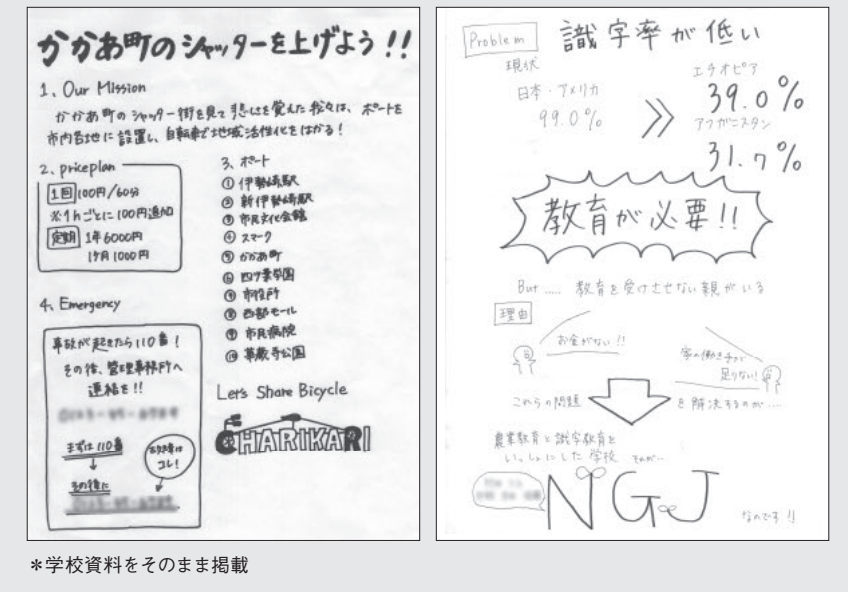 かかあ町のシャッターを上げよう!!
1、Our Mission
かかあ町のシャッター街を見て悲しさを覚えた我々は、ポートを
市内各地に設置し、自転車で地域活性化をはかる!
2、priceplan
1回 100円/60分
※1hごとに100円追加
定期 1年6000円
1ヶ月1000円
3、ポート
① 伊勢崎駅
② 新伊勢崎駅
③ 市民文化会館
④ スマーク
⑤ かかあ町
⑥ 四ツ葉学園
⑦ 市役所
⑧ 西部モール
⑨ 市民病院
⑩ 華蔵寺公園
4、Emergency
事故が起きたら110番!
その後、管理事務所へ
連絡を!!
まずは110番
↓
その後に
お急ぎはコレ!
Let's Share Bicycle
CHARIKARI
Problem 識字率が低い
現状
日本・アメリカ
99.0%
エチオピア
39.0%
アフガニスタン
31.7%
教育が必要!!
But..... 教育を受けさせない親がいる
理由
お金がない!!
家の働き手が
足りない!
これらの問題 を解決するのが....
農業教育と識字教育を
いっしょにした学校 それが...
NGJ
なのです!!
*学校資料をそのまま掲載